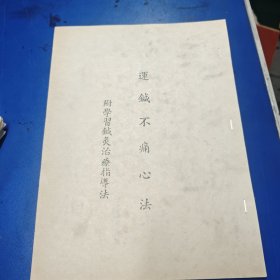 運鍼不痛心法
附學習鍼灸治療指導法